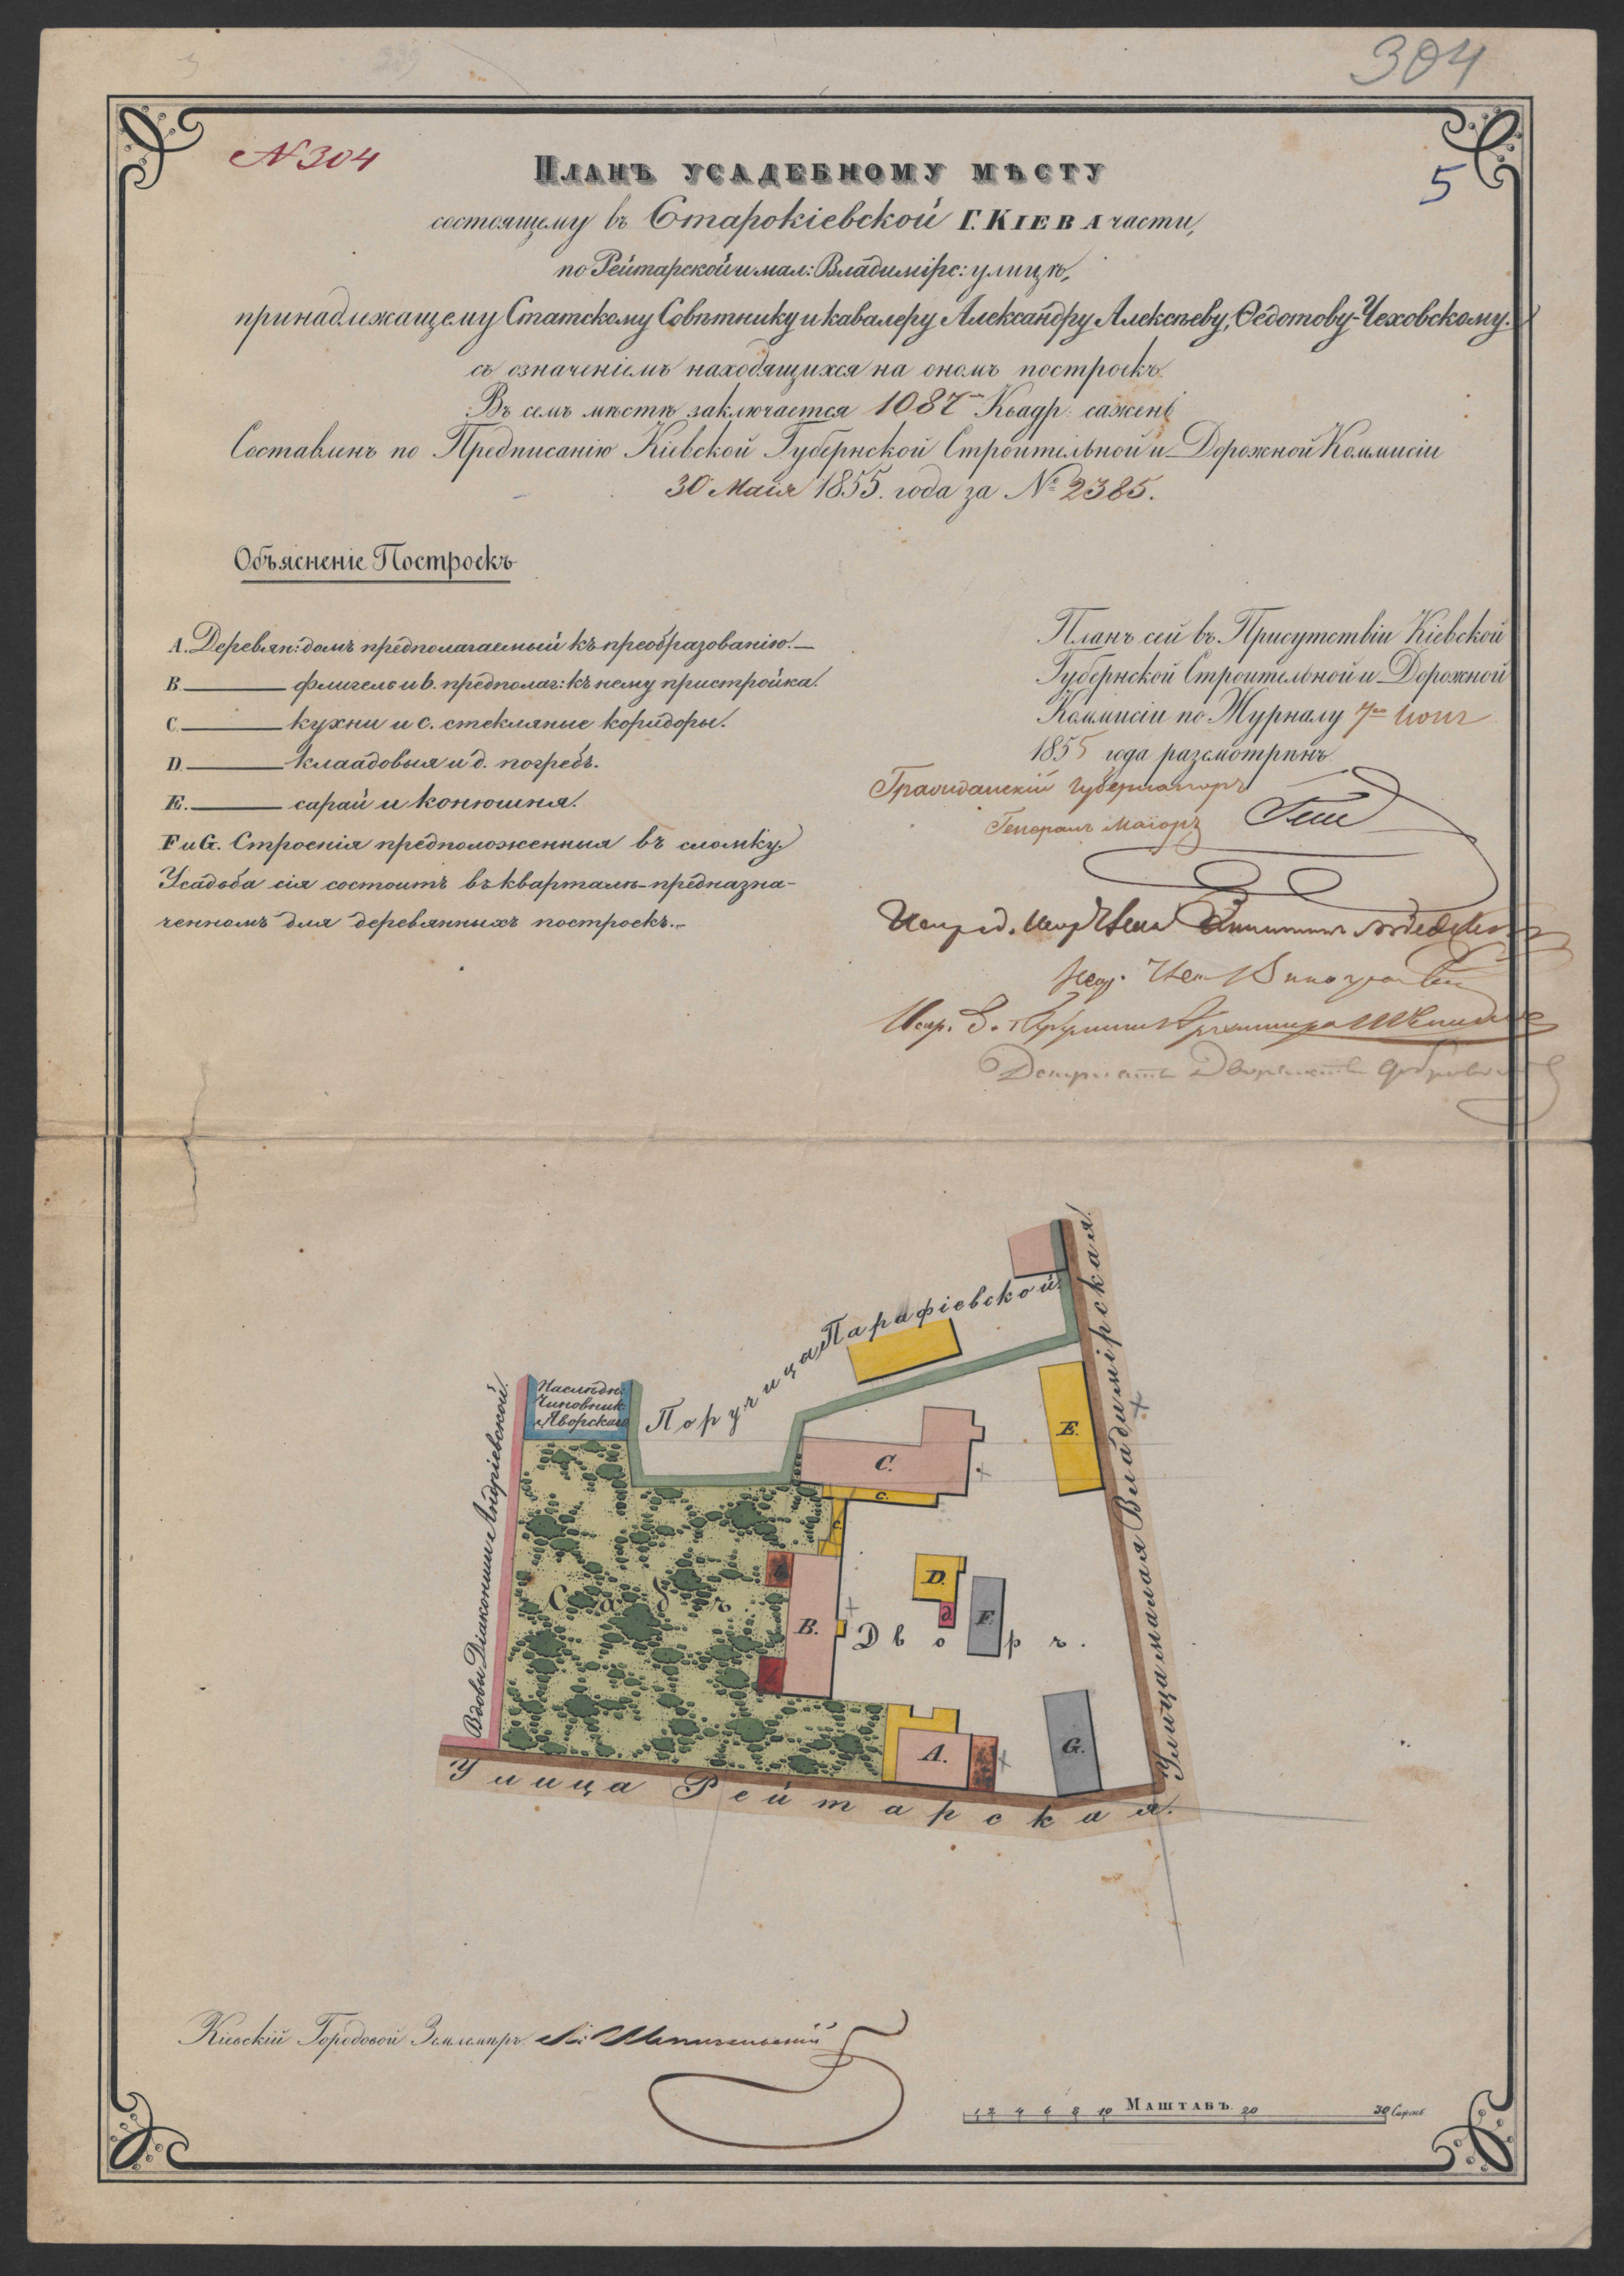 304
№ 304
5
Планъ усадебному мѣсту
состоящему въ Старокіевской Г. Кіева части,
по Рейтарской и мал: Владимірс: улицѣ,
принадлежащему Статскому Совѣтнику и кавалеру Александру Алексѣеву, Ѳедотову-Чеховскому.
съ означеніемъ находящихся на ономъ построекъ.
Въ семъ мѣстѣ заключается 1087 Квадр: сажень
Составленъ по Предписанію Кіевской Губернской Строительной и Дорожной Коммисіи
30 Маія 1855. года за № 2385.
Объясненіе Построекъ
A. Деревян: домъ предполагаемый къ преобразованію.—
B. — флигель и b. предполаг: къ нему пристройка.
C. — кухни и c. стекляные коридоры.
D. — клаадовыя и d. погребъ.
E. — сарай и конюшня.
F и G. Строенія предположенныя въ сломку
Усадьба сія состоитъ въ кварталѣ предназна-
ченномъ для деревянныхъ построекъ.—
Планъ сей въ Присутствіи Кіевской
Губернской Строительной и Дорожной
Коммисіи по Журналу 7 Іюня
1855 года разсмотрѣнъ.
Гражданскій Губернаторъ
Генералъ Маіоръ
Улица малая Владимірская.
Поручица Парафіевской.
Наслѣдн:
Чиновник:
Яворскаго
Вдовы Діаконши Андріевской.
E.
C.
c.
c.
D.
d
F.
B.
Садъ
Дворъ.
A.
G.
Улица Рейтарская.
Кіевскій Городовой Землемѣръ
Маштабъ.
1 2 4 6 8 10 20 30 Сажень